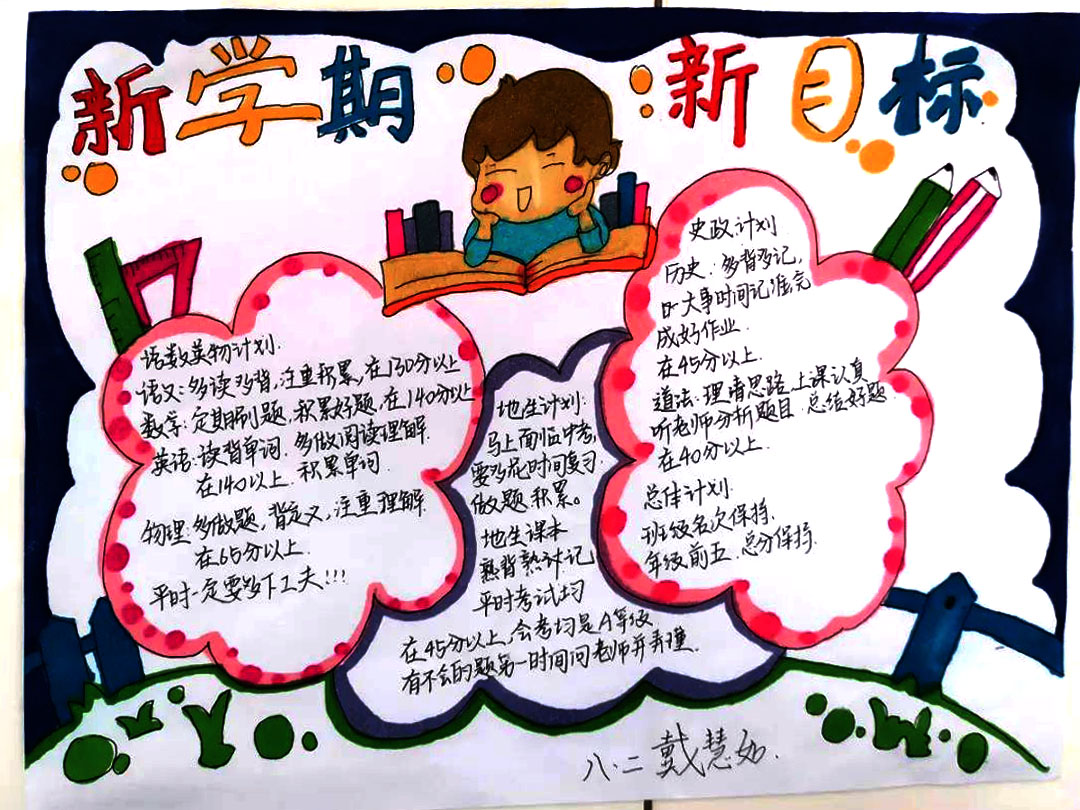 新学期 新目标
语数英物计划.
语文:多读多背,注重积累,在130分以上
数学:定期刷题,积累好题,在140分以上
英语:读背单词.多做阅读理解.
在140以上.积累单词.
物理:多做题,背定义,注重理解.
在65分以上.
平时一定要多下工夫!!!
地生计划:
马上面临中考,
要多花时间复习.
做题积累。
地生课本
熟背熟记
平时考试均
在45分以上,会考均是A等级,
有不会的题第一时间问老师并弄懂.
史政计划
历史:多背多记,
大事时间记准完
成好作业.
在45分以上.
道法:理清思路.上课认真
听老师分析题目.总结好题.
在40分以上.
总体计划.
班级名次保持.
年级前五.总分保持.
八.二戴慧如.